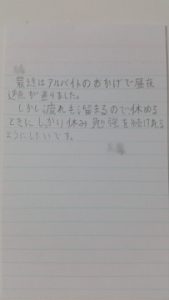 最近はアルバイトのおかげで昼夜
逆転が直りました。
しかし疲れも溜まるので休める
ときにしっかり休み勉強を続けれる
ようにしたいです。